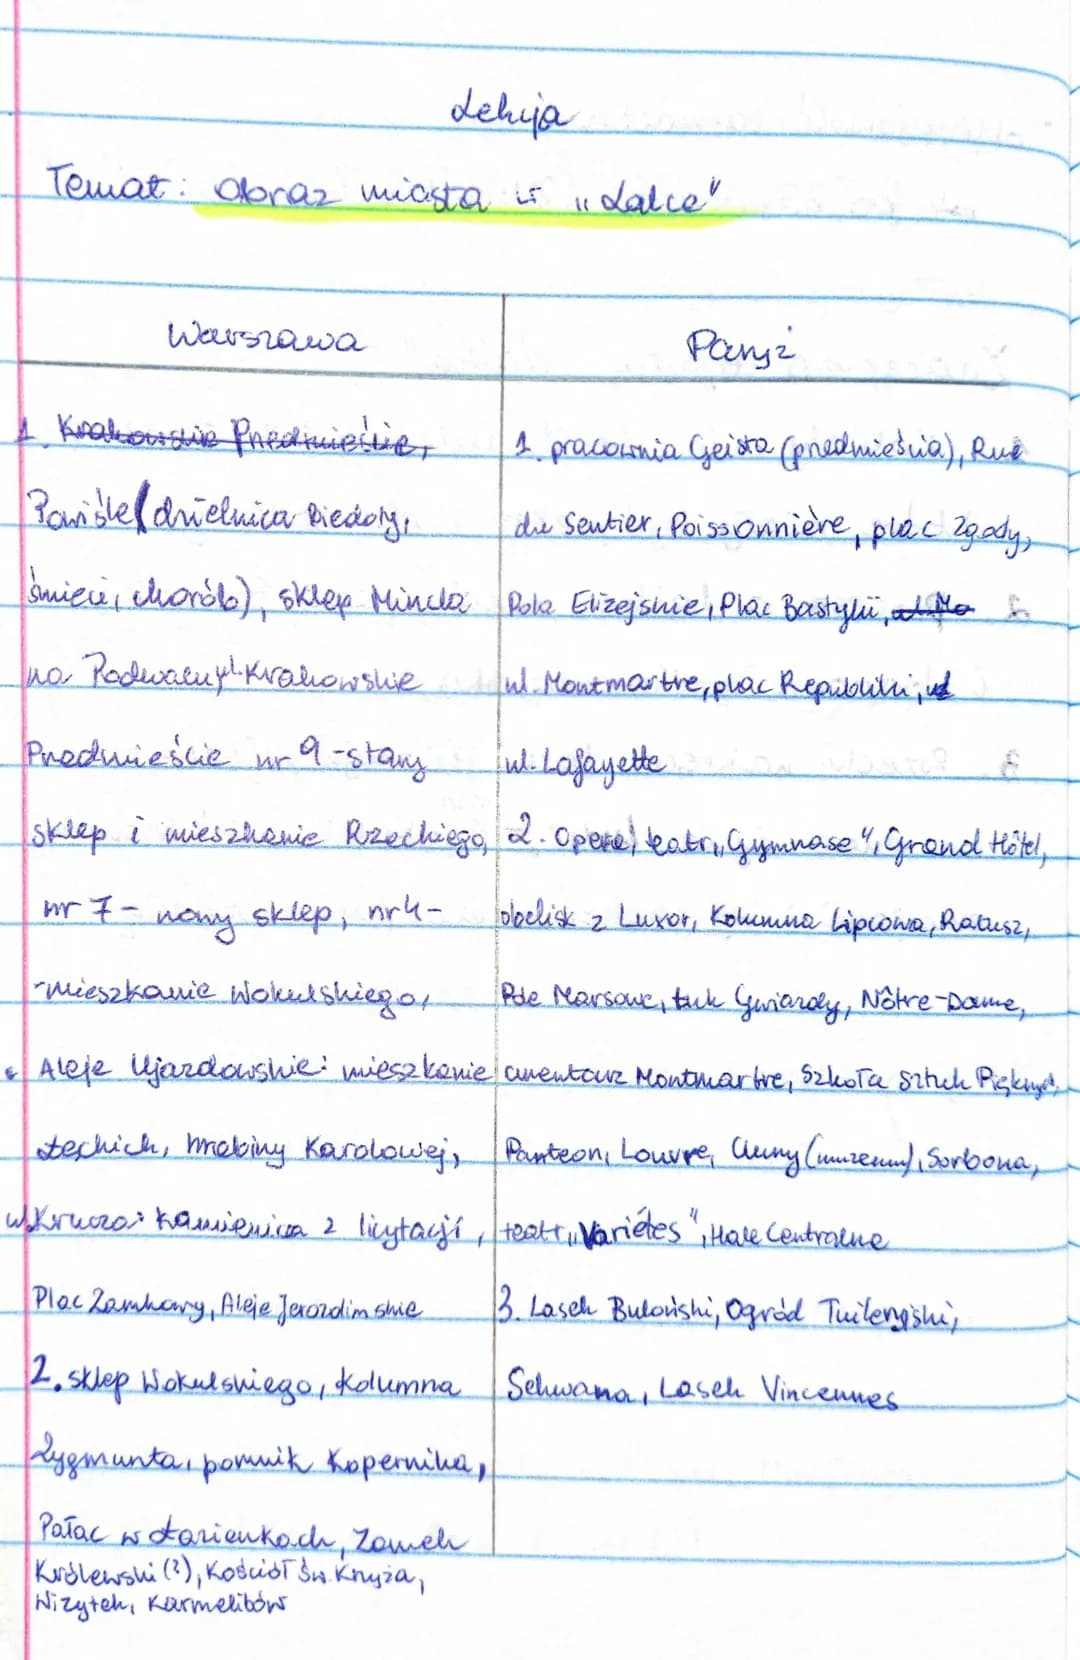 Lekcja
Temat: Obraz miasta w „Lalce"
Warszawa
Paryż
1. Krakowskie Przedmieście,
Powiśle (dzielnica biedoty,
śmieci, chorób), sklep Mincla
na Podwalu, Krakowskie
Przedmieście nr 9 - stary
sklep i mieszkanie Rzeckiego,
nr 7 - nowy sklep, nr 4 -
- mieszkanie Wokulskiego,
Aleje Ujazdowskie: mieszkanie
Łęckich, hrabiny Karolowej,
ul. Krucza: kamienica z licytacji,
Plac Zamkowy, Aleje Jerozolimskie
2. sklep Wokulskiego, kolumna
Zygmunta, pomnik Kopernika,
Pałac w Łazienkach, Zamek
Królewski (?), Kościół Św. Krzyża,
Wizytek, Karmelitów
1. pracownia Geista (przedmieścia), Rue
du Sentier, Poissonnière, plac Zgody,
Pola Elizejskie, Plac Bastylii,
ul. Montmartre, plac Republiki, ul
ul. Lafayette
2. Opera, teatr „Gymnase", Grand Hôtel,
obelisk z Luxor, Kolumna Lipcowa, Ratusz,
Pole Marsowe, Łuk Gwiazdy, Nôtre-Dame,
cmentarz Montmartre, Szkoła Sztuk Pięknych,
Panteon, Louvre, Cluny (muzeum), Sorbona,
teatr „Variétes", Hale Centralne
3. Lasek Buloński, Ogród Tuileryjski,
Sekwana, Lasek Vincennes